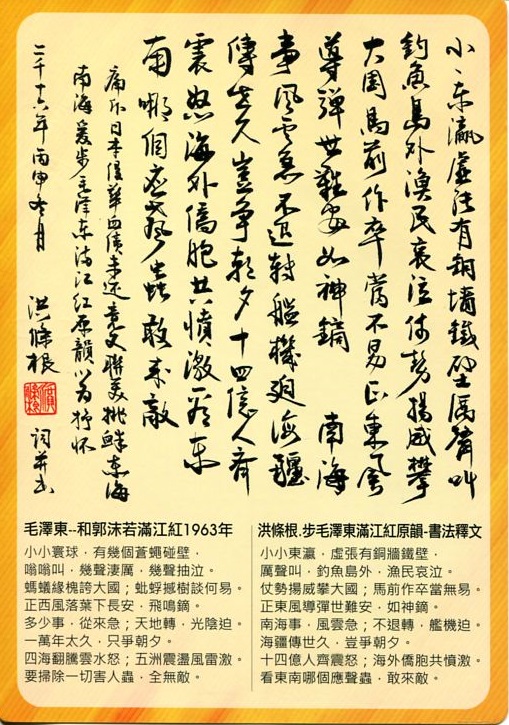 小小東瀛虛張有銅墻鐵壁厲聲叫
釣魚島外漁民哀泣仗勢揚威攀
大國馬前作卒當不易正東風
導彈世難安如神鏑 南海
事風雲急不退轉艦機迴海疆
傳世久豈爭朝夕十四億人齊
震怒海外僑胞共憤激看東
南哪個應聲蟲敢來敵
痛斥日本侵華血債未還竟又聯美挑釁東海
南海爰步毛澤東滿江紅原韻以為抒懷
二千十六年丙申冬月 洪條根 詞并書
毛澤東--和郭沫若滿江紅1963年
小小寰球，有幾個蒼蠅碰壁，
嗡嗡叫，幾聲淒厲，幾聲抽泣。
螞蟻緣槐誇大國；蚍蜉撼樹談何易。
正西風落葉下長安，飛鳴鏑。
多少事，從來急；天地轉，光陰迫。
一萬年太久，只爭朝夕。
四海翻騰雲水怒；五洲震盪風雷激。
要掃除一切害人蟲，全無敵。
洪條根.步毛澤東滿江紅原韻-書法釋文
小小東瀛，虛張有銅牆鐵壁，
厲聲叫，釣魚島外，漁民哀泣。
仗勢揚威攀大國；馬前作卒當無易。
正東風導彈世難安，如神鏑。
南海事，風雲急；不退轉，艦機迫。
海疆傳世久，豈爭朝夕。
十四億人齊震怒；海外僑胞共憤激。
看東南哪個應聲蟲，敢來敵。